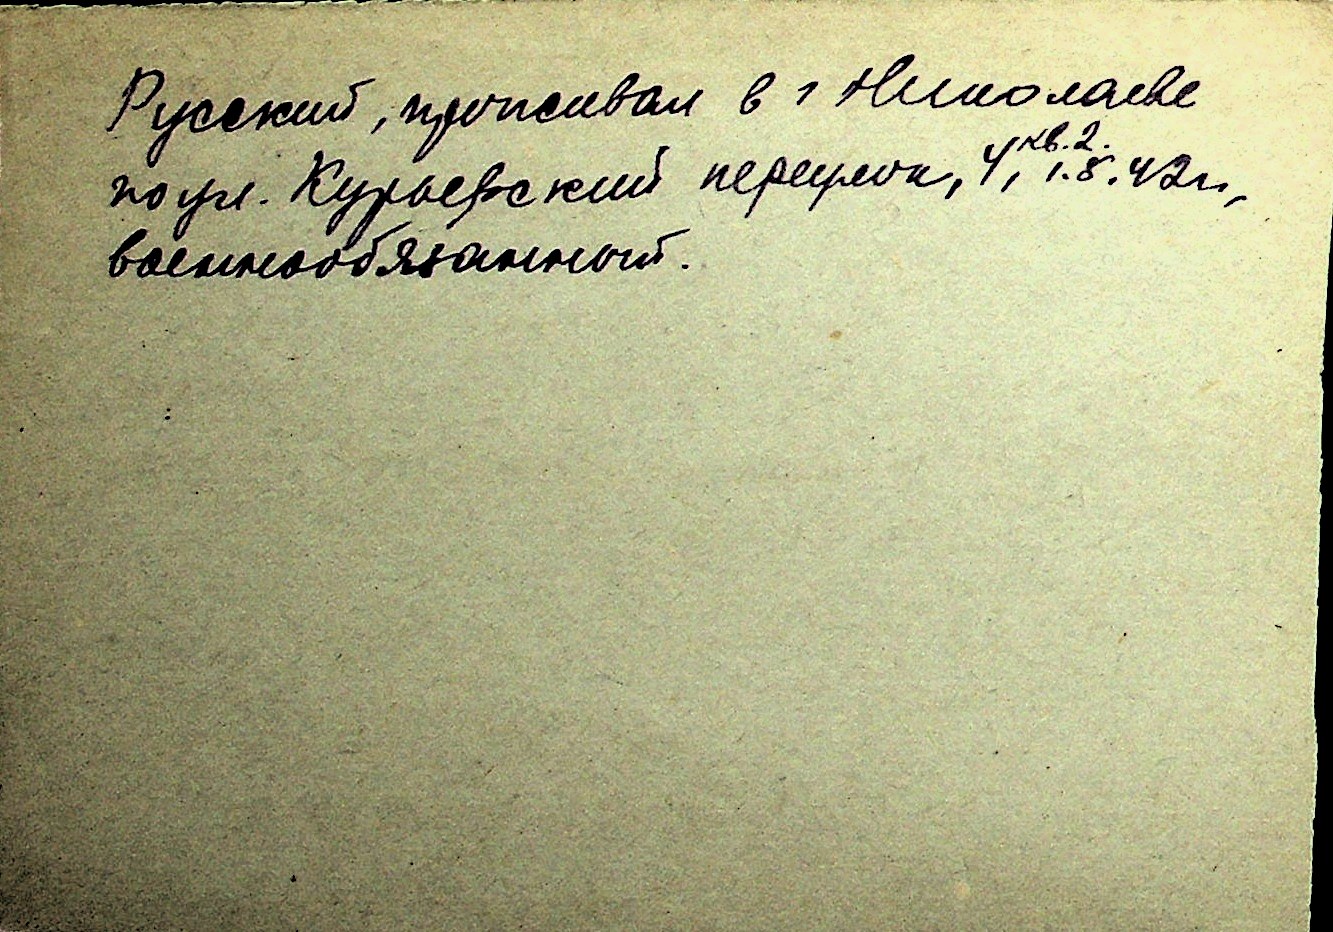 Русский, проживал в г Николаеве
по ул. Курьевский переулок, 4, кв. 2. 1.8.42 г.,
военнообязанный.